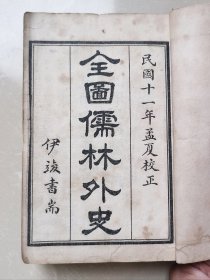 民國十一年孟夏校正
全圖儒林外史
伊䇓書耑